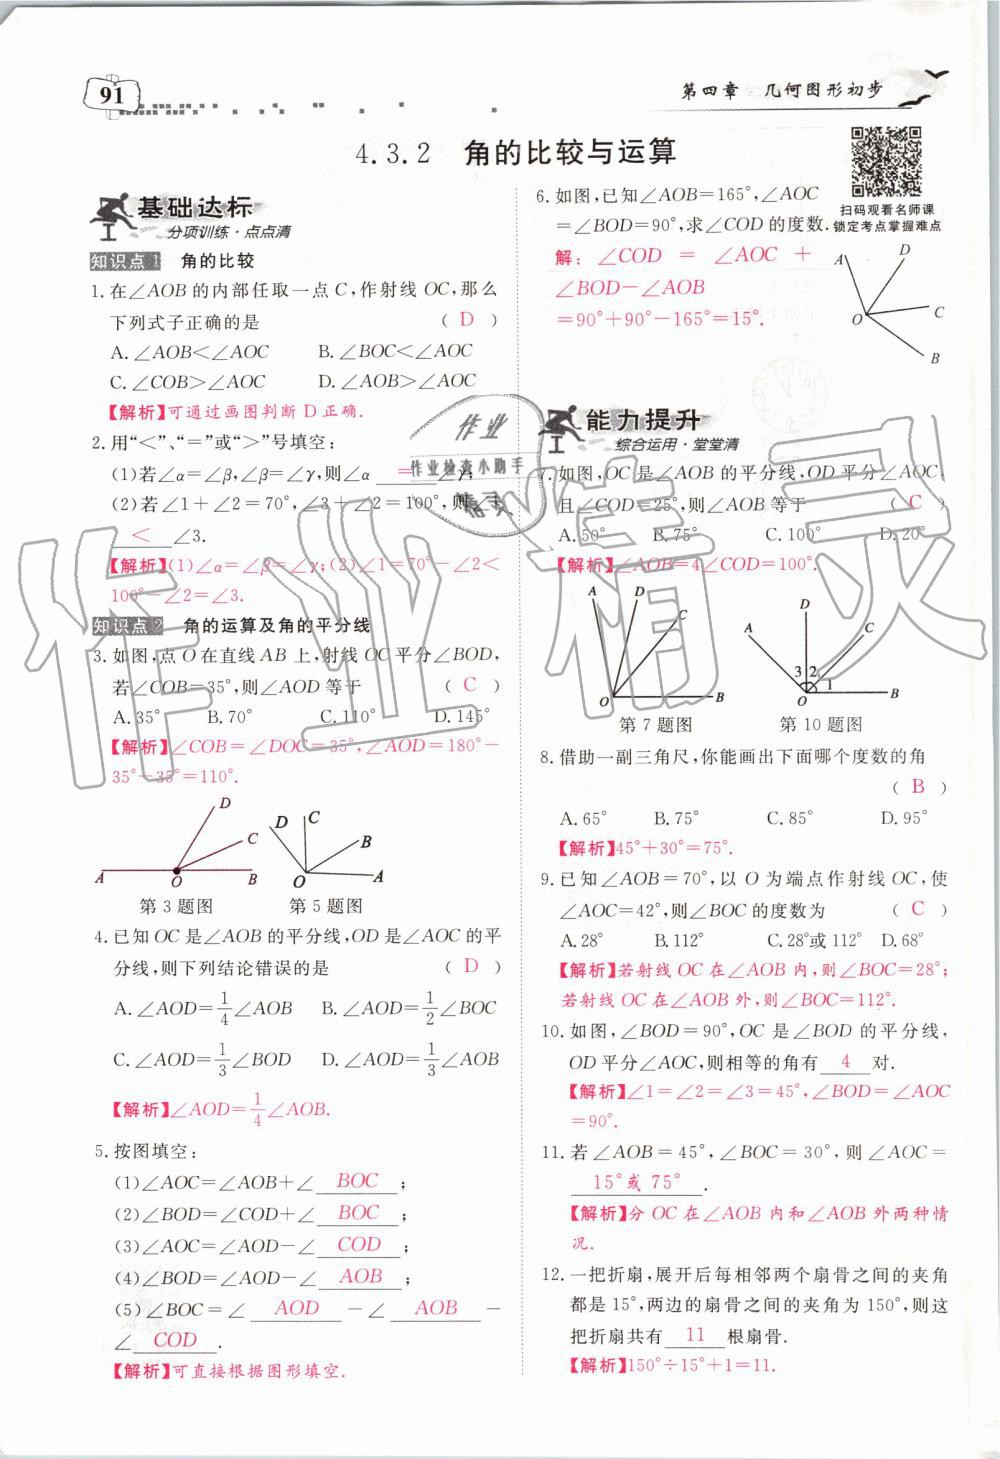 91
第四章 几何图形初步
4.3.2 角的比较与运算
扫码观看名师课
锁定考点掌握难点
基础达标
分项训练·点点清
知识点1 角的比较
1.在∠AOB的内部任取一点C,作射线OC,那么
下列式子正确的是 ( D )
A.∠AOB<∠AOC B.∠BOC<∠AOC
C.∠COB>∠AOC D.∠AOB>∠AOC
【解析】可通过画图判断D正确.
2.用“<”、“=”或“>”号填空:
(1)若∠α=∠β,∠β=∠γ,则∠α = ∠γ;
(2)若∠1+∠2=70°,∠3+∠2=100°,则∠1
< ∠3.
【解析】(1)∠α=∠β=∠γ;(2)∠1=70°-∠2<
100°-∠2=∠3.
知识点2 角的运算及角的平分线
3.如图,点O在直线AB上,射线OC平分∠BOD,
若∠COB=35°,则∠AOD等于 ( C )
A.35° B.70° C.110° D.145°
【解析】∠COB=∠DOC=35°,∠AOD=180°-
35°-35°=110°.
D
C
A O B
第3题图
D C
B
O A
第5题图
4.已知OC是∠AOB的平分线,OD是∠AOC的平
分线,则下列结论错误的是 ( D )
A.∠AOD=1/4∠AOC B.∠AOD=1/2∠BOC
C.∠AOD=1/3∠BOD D.∠AOD=1/3∠AOB
【解析】∠AOD=1/4∠AOB.
5.按图填空:
(1)∠AOC=∠AOB+∠ BOC ;
(2)∠BOD=∠COD+∠ BOC ;
(3)∠AOC=∠AOD-∠ COD ;
(4)∠BOD=∠AOD-∠ AOB ;
(5)∠BOC=∠ AOD -∠ AOB -
∠ COD .
【解析】可直接根据图形填空.
6.如图,已知∠AOB=165°,∠AOC
=∠BOD=90°,求∠COD的度数.
解:∠COD = ∠AOC +
∠BOD-∠AOB
=90°+90°-165°=15°.
A D
O C
B
能力提升
综合运用·堂堂清
7.如图,OC是∠AOB的平分线,OD平分∠AOC,
且∠COD=25°,则∠AOB等于 ( C )
A.50° B.75° C.100° D.20°
【解析】∠AOB=4∠COD=100°.
A D
C
O B
第7题图
D
A C
3 2
1
O B
第10题图
8.借助一副三角尺,你能画出下面哪个度数的角
( B )
A.65° B.75° C.85° D.95°
【解析】45°+30°=75°.
9.已知∠AOB=70°,以O为端点作射线OC,使
∠AOC=42°,则∠BOC的度数为 ( C )
A.28° B.112° C.28°或112° D.68°
【解析】若射线OC在∠AOB内,则∠BOC=28°;
若射线OC在∠AOB外,则∠BOC=112°.
10.如图,∠BOD=90°,OC是∠BOD的平分线,
OD平分∠AOC,则相等的角有 4 对.
【解析】∠1=∠2=∠3=45°,∠BOD=∠AOC
=90°.
11.若∠AOB=45°,∠BOC=30°,则∠AOC=
15°或75° .
【解析】分OC在∠AOB内和∠AOB外两种情
况.
12.一把折扇,展开后每相邻两个扇骨之间的夹角
都是15°,两边的扇骨之间的夹角为150°,则这
把折扇共有 11 根扇骨.
【解析】150°÷15°+1=11.
作业
作业检查小助手
精灵
作业精灵